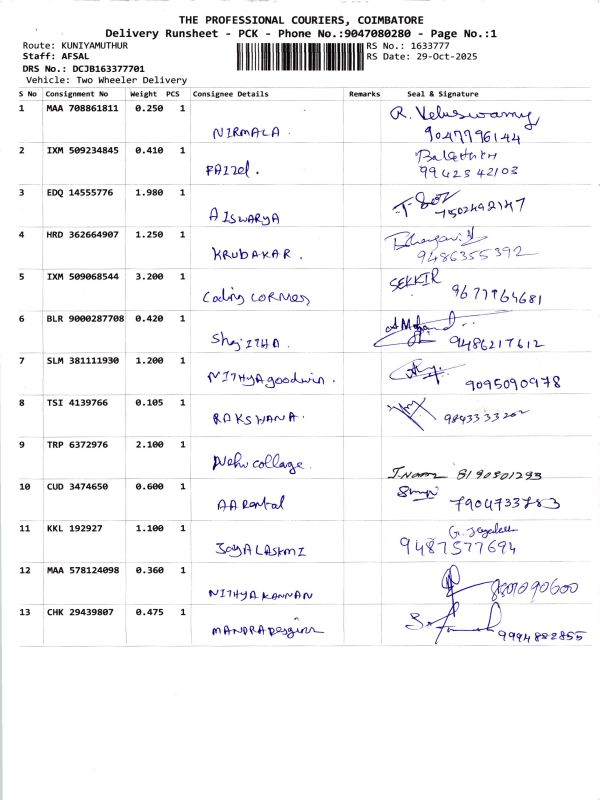 THE PROFESSIONAL COURIERS, COIMBATORE
Delivery Runsheet - PCK - Phone No.:9047080280 - Page No.:1
Route: KUNIYAMUTHUR RS No.: 1633777
Staff: AFSAL RS Date: 29-Oct-2025
DRS No.: DCJB163377701
Vehicle: Two Wheeler Delivery
S No Consignment No Weight PCS Consignee Details Remarks Seal & Signature
1 MAA 708861811 0.250 1 NIRMALA. R. Veluswamy
9047796144
2 IXM 509234845 0.410 1 FAIZEL.
99423 42103
3 EDQ 14555776 1.980 1 AISWARYA
7502492147
4 HRD 362664907 1.250 1 KRUBAKAR.
9486355392
5 IXM 509068544 3.200 1 Coding CORNER SEKKIR
9677764681
6 BLR 9000287708 0.420 1 Shajitha.
9486217612
7 SLM 381111930 1.200 1 NITHYA goodwin.
9095090978
8 TSI 4139766 0.105 1 RAKSHANA.
9843333202
9 TRP 6372976 2.100 1 Nehru collage.
8190501293
10 CUD 3474650 0.600 1 AA Rental
7904733783
11 KKL 192927 1.100 1 JAYALASKMI
9487577694
12 MAA 578124098 0.360 1 NITHYA KANNAN
13 CHK 29439807 0.475 1 MANDRA
9994882855